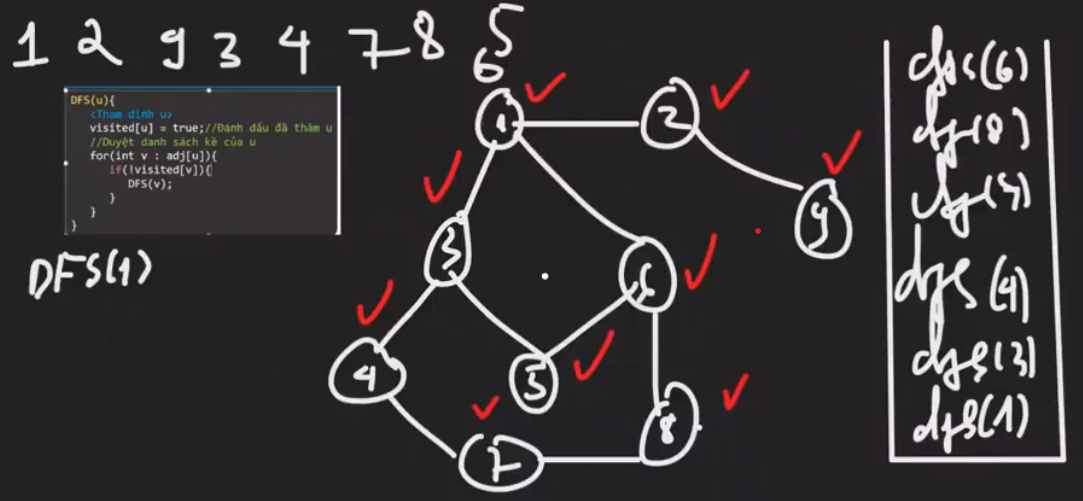 1 2 9 3 4 7 8 5
6
DFS(u){
<Thăm đỉnh u>
visited[u] = true;//Đánh dấu đã thăm u
//Duyệt danh sách kề của u
for(int v : adj[u]){
if(!visited[v]){
DFS(v);
}
}
}
DFS(1)
1
2
9
3
6
4
5
7
8
dfs(6)
dfs(8)
dfs(4)
dfs(3)
dfs(1)